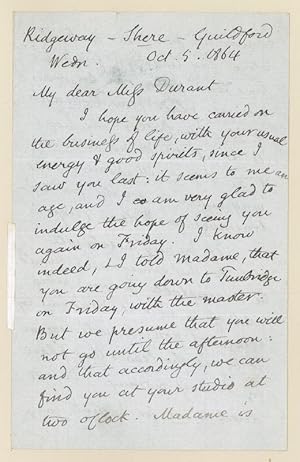 Ridgeway – Shere – Guildford
Wedn. Oct. 5. 1864
My dear Miss Durant
I hope you have carried on
the business of life, with your usual
energy & good spirits, since I
saw you last: it seems to me an
age, and I am very glad to
indulge the hope of seeing you
again on Friday. I know
indeed, & I told Madame, that
you are going down to Tunbridge
on Friday, with the master.
But we presume that you will
not go until the afternoon:
and that accordingly, we can
find you at your studio at
two o'clock. Madame is